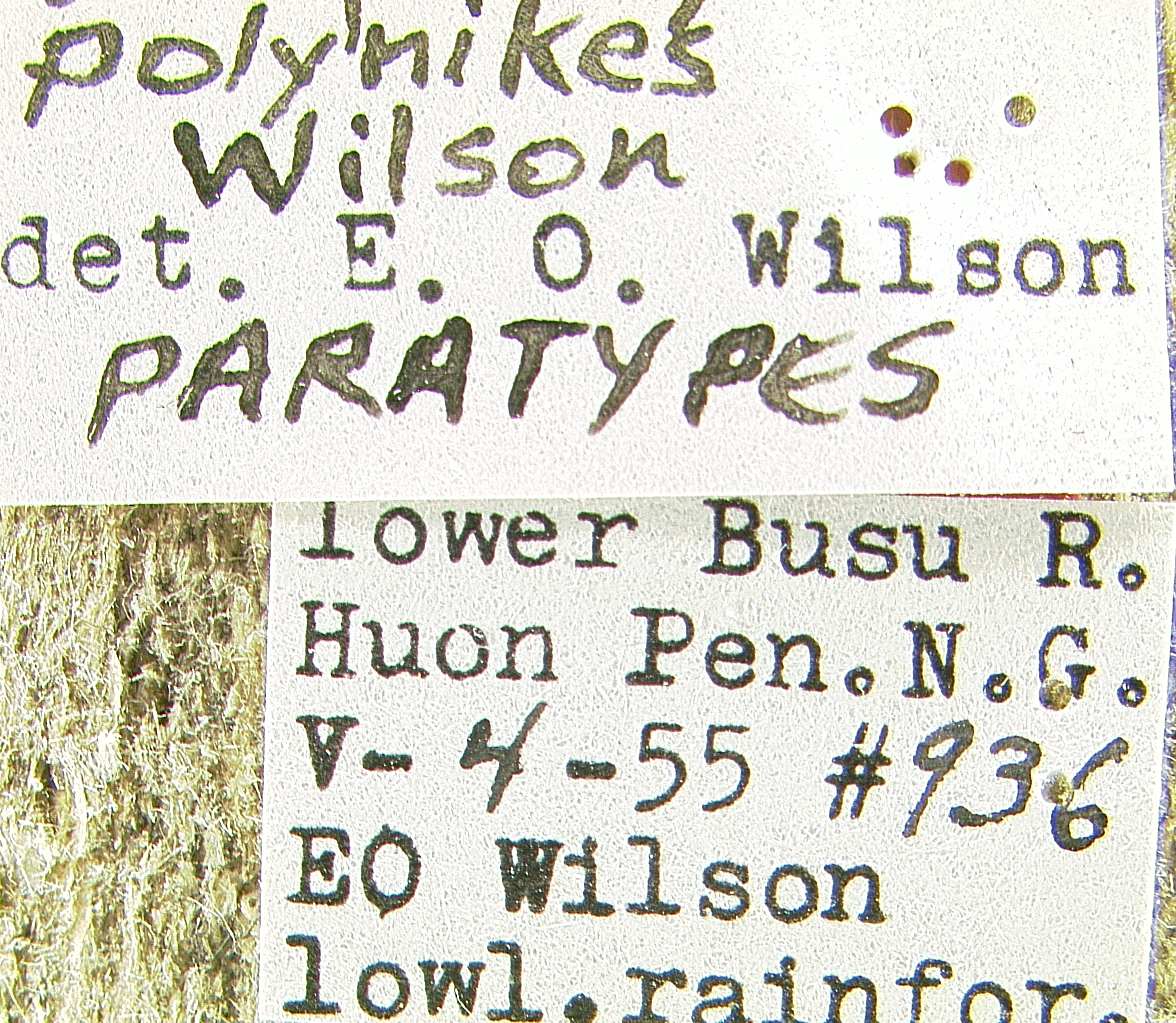 polynikes
Wilson
det. E. O. Wilson
PARATYPES
lower Busu R.
Huon Pen.N.G.
V- 4 -55 #936
EO Wilson
lowl.rainfor.